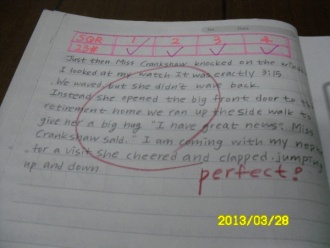 SGR 1 2 3 4
23#
Just then Miss Crankshaw knocked on the
I looked at my watch It was exactly 9:15
We waved but she didn't wave back.
Instead she opened the big front door to the
retirement home we ran up the side walk to
give her a big hug. "I have great news", Miss
Crankshaw said." I am coming with my
for a visit she cheered and clapped, jumping
up and down.
perfect!
2013/03/28